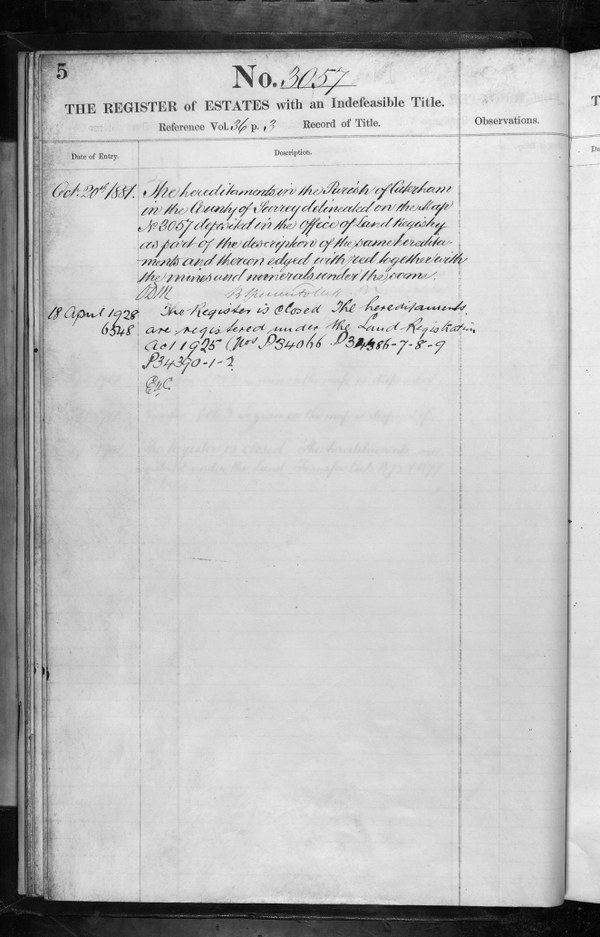 5
No. 3057
THE REGISTER of ESTATES with an Indefeasible Title.
Reference Vol. 36 p. 3 Record of Title.
Observations.
Date of Entry.
Description.
Oct. 20th 1881. The hereditaments in the Parish of Caterham
in the County of Surrey delineated on the Map
No 3057 deposited in the office of Land Registry
as part of the description of the same heredita-
ments and thereon edged with red together with
the mines and minerals under the same.
18 April 1928 The Register is closed The hereditaments
6548 are registered under the Land Registration
Act 1925 (Nos P34066 P34386-7-8-9
P34390-1-2